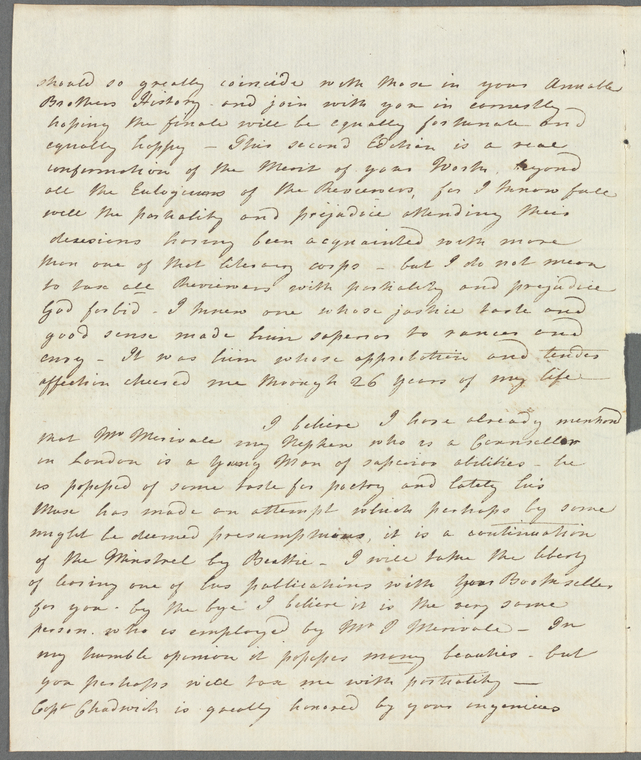 should so greatly coincide with those in your Amiable
Brothers History - and join with you in earnestly
hoping the finale will be equally fortunate and
equally happy - This second Edition is a real
confirmation of the Merit of your Works, beyond
all the Eulogiums of the Reviewers, for I know full
well the partiality and prejudice attending their
decisions having been acquainted with more
than one of that literary corps - but I do not mean
to tax all Reviewers with partiality and prejudice
God forbid - I knew one whose justice taste and
good sense made him superior to rancor and
envy - It was him whose approbation and tender
affection cheered me through 26 years of my life -
I believe I have already mentiond
that Mr Merivale my Nephew who is a Counsellor
in London is a Young Man of superior abilities - he
is possessed of some taste for poetry and lately his
Muse has made an attempt which perhaps by some
might be deemed presumptuous, it is a continuation
of the Minstrel by Beattie - I will take the liberty
of leaving one of his publications with Your Bookseller
for you - by the bye I believe it is the very same
person who is employed by Mr Merivale - In
my humble opinion it possesses many beauties - but
you perhaps will tax me with partiality -
Capt Chadwick is greatly honored by your ingenious